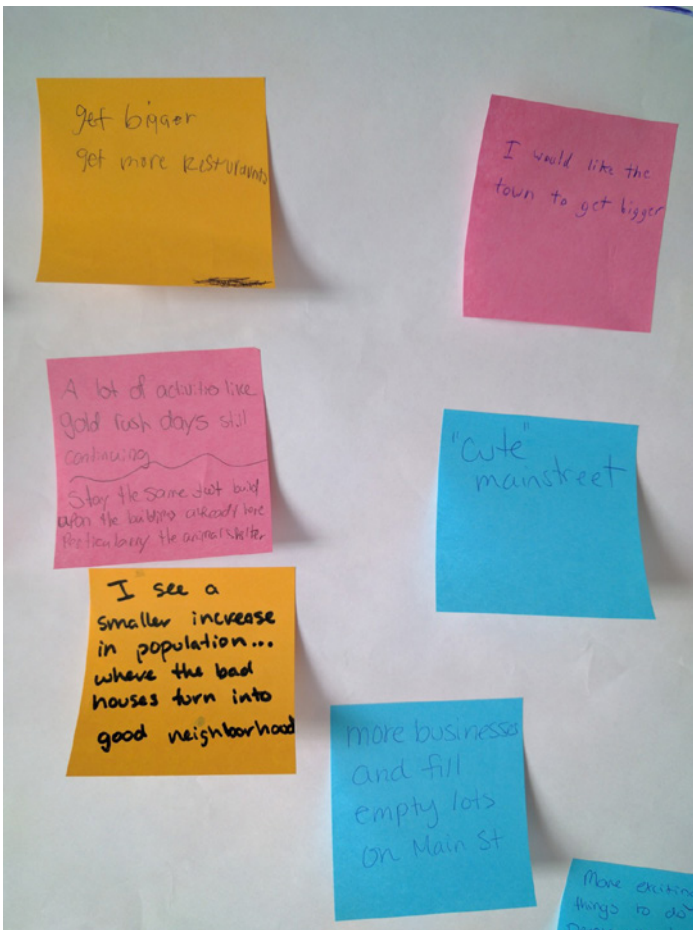 get bigger
get more Resturants
I would like the
town to get bigger
A lot of activities like
gold rush days still
continuing
Stay the same Just build
upon the buildings already here
Particularly the animal shelter
"cute"
mainstreet
I see a
smaller increase
in population...
where the bad
houses turn into
good neighborhood
more businesses
and fill
empty lots
on Main St
More exciting
things to do